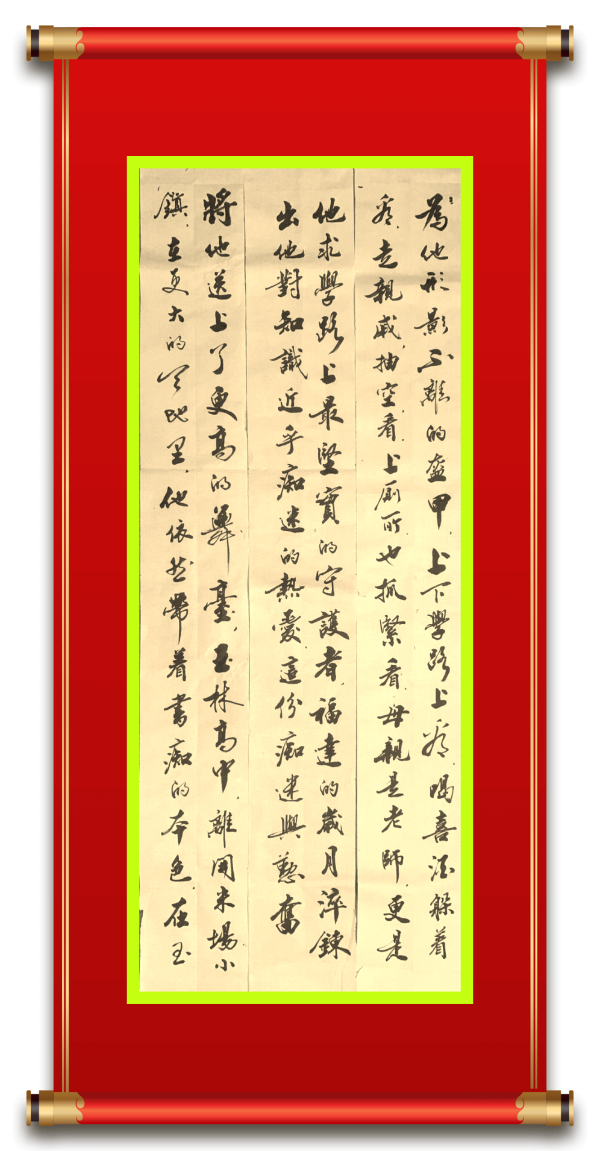 為他形影不離的盔甲.上下學路上看.喝喜酒躲着
看.走親戚.抽空看.上厠所也抓緊看.母親是老師.更是
他求學路上最堅實的守護者.福達的歲月淬鍊
出他對知識近乎痴迷的熱愛這份痴迷與懃奮
將他送上了更高的舞臺.玉林高中.離開米場小
鎮.在更大的天地里.他依然帶着書痴的本色.在玉